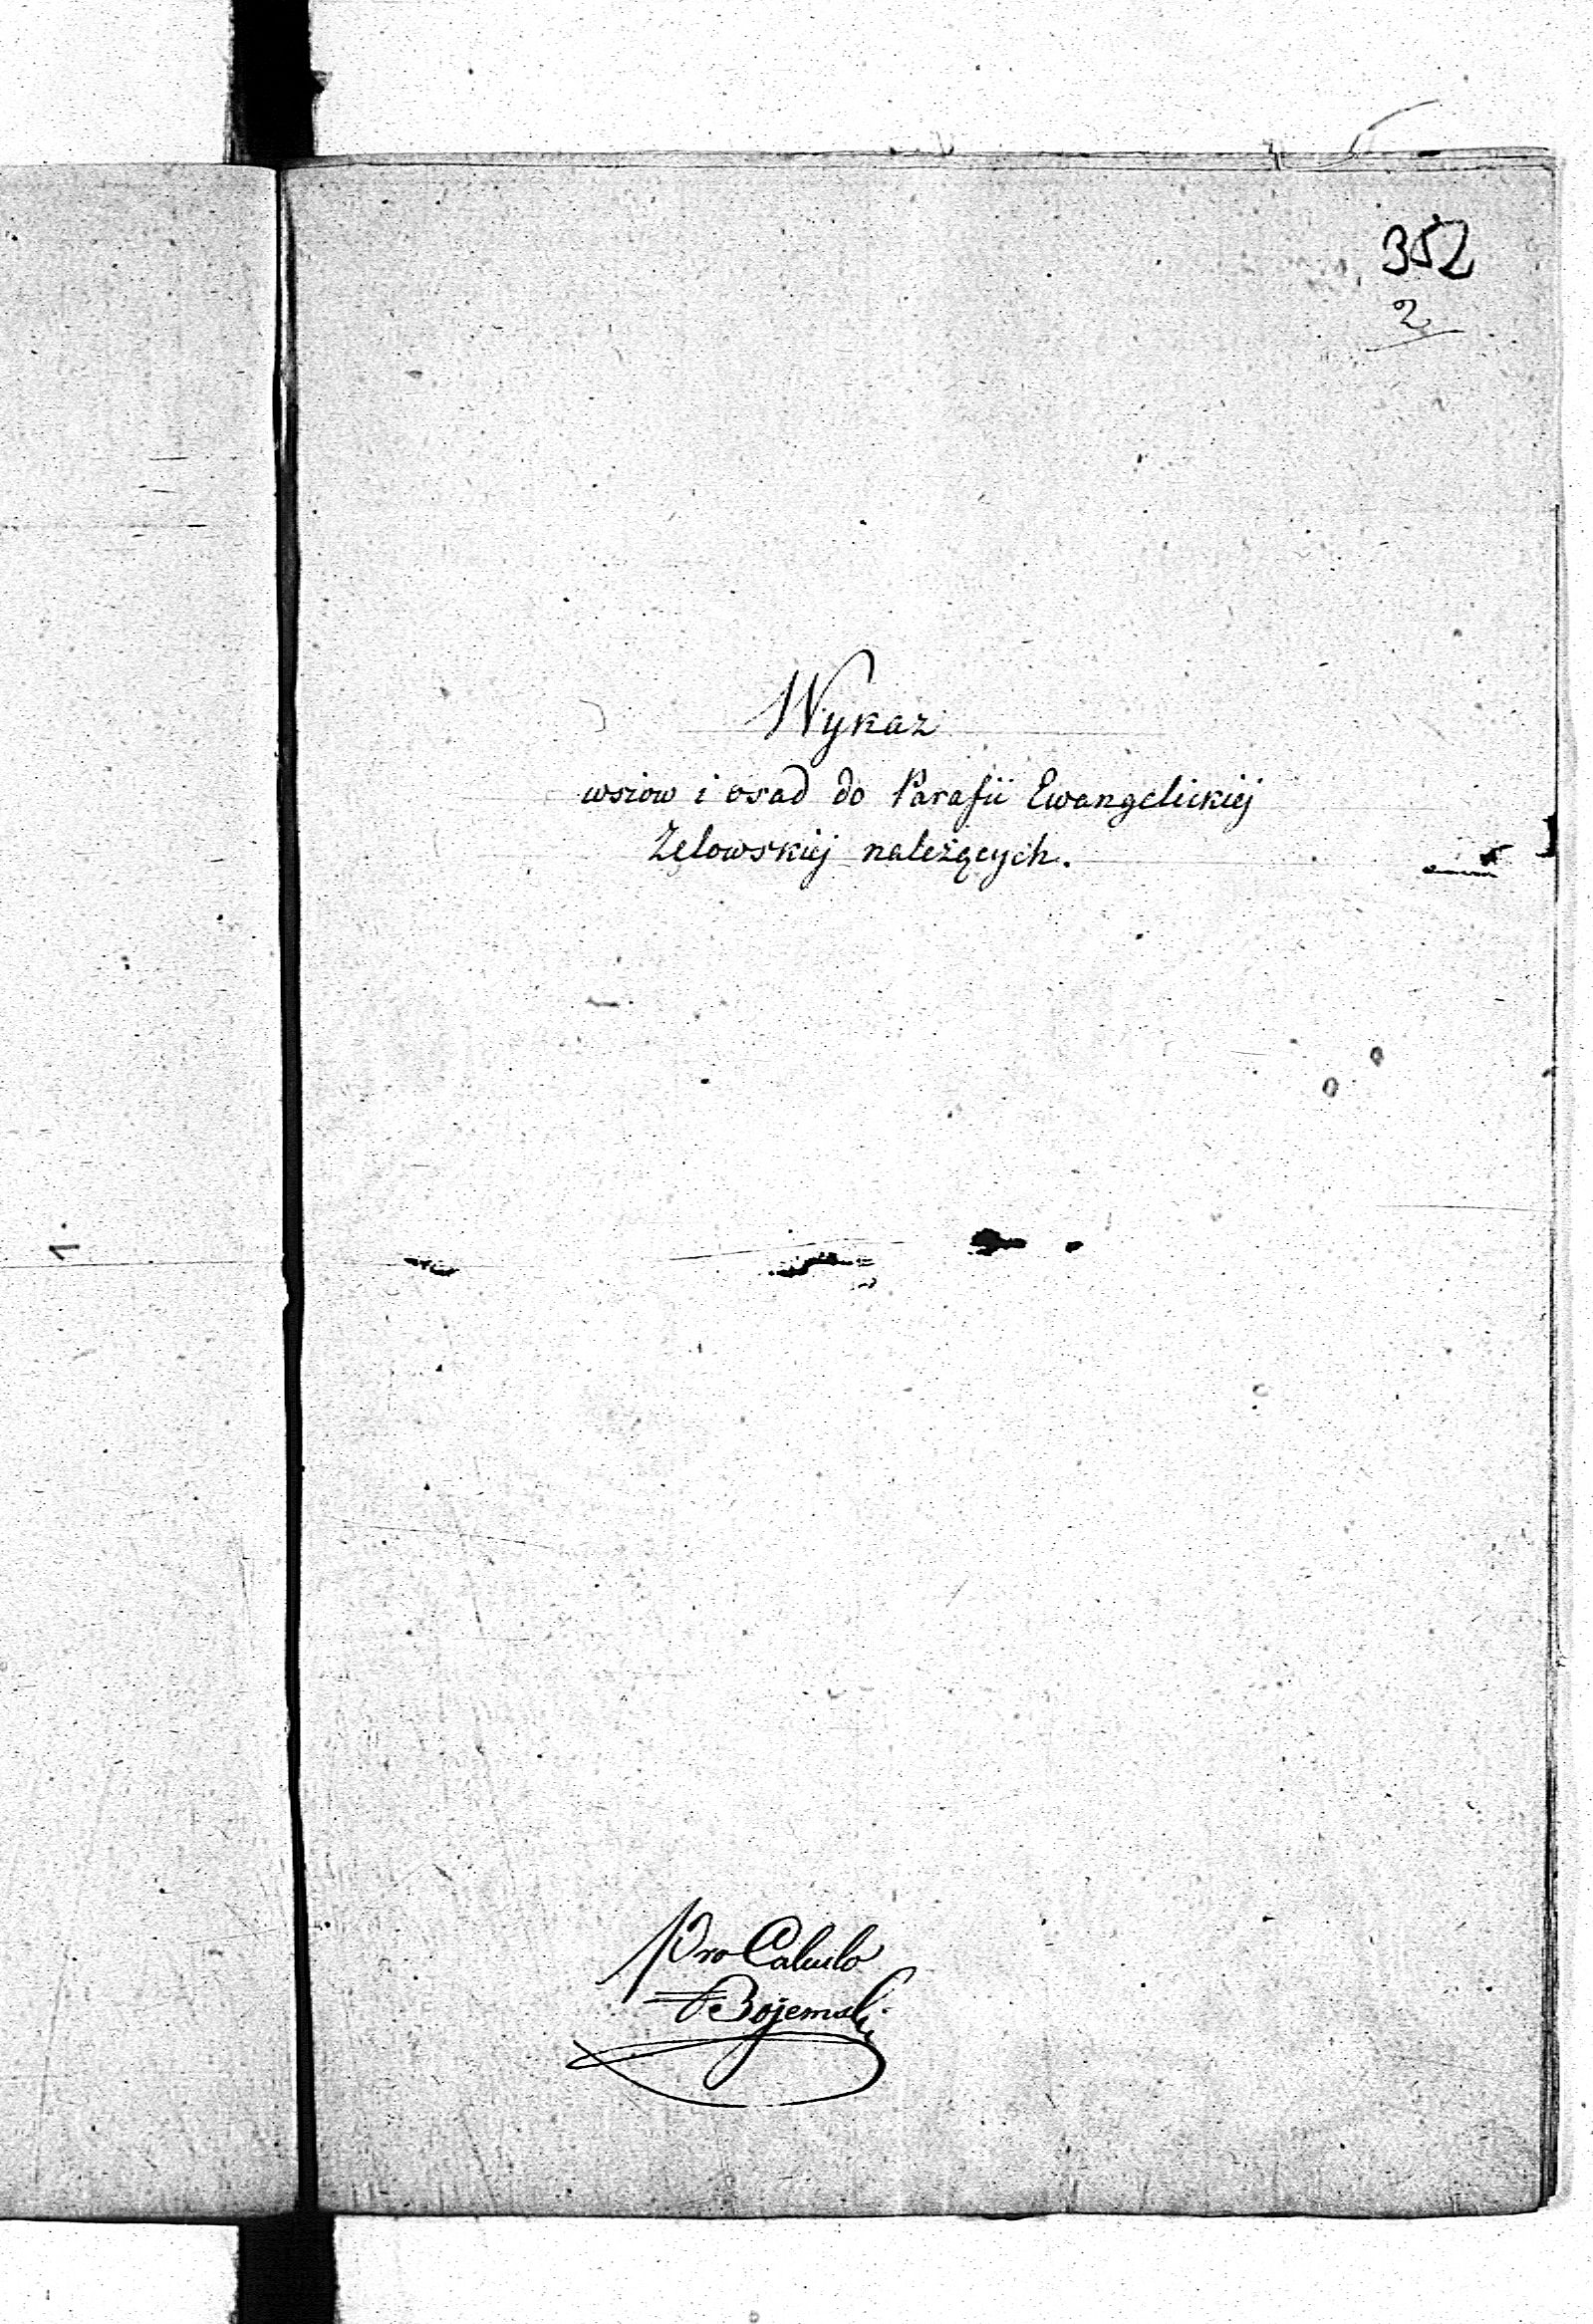 352
2
Wykaz
wsiow i osad do Parafii Ewangelickiej
Zelowskiej należących.
Pro Calculo
Bojemski